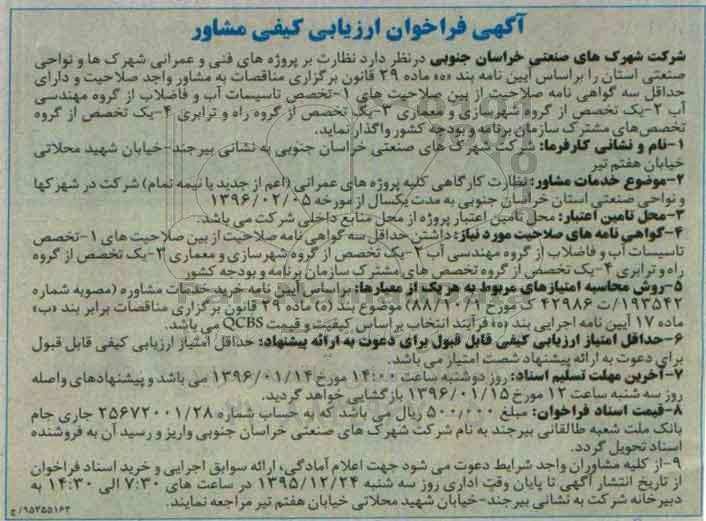 آگهی فراخوان ارزیابی کیفی مشاور
شرکت شهرک های صنعتی خراسان جنوبی درنظر دارد نظارت بر پروژه های فنی و عمرانی شهرک ها و نواحی
صنعتی استان را براساس آیین نامه بند «ه» ماده ۲۹ قانون برگزاری مناقصات به مشاور واجد صلاحیت و دارای
حداقل سه گواهی نامه صلاحیت از بین صلاحیت های ۱-تخصص تاسیسات آب و فاضلاب از گروه مهندسی
آب ۲-یک تخصص از گروه شهرسازی و معماری ۳-یک تخصص از گروه راه و ترابری ۴-یک تخصص از گروه
تخصص‌های مشترک سازمان برنامه و بودجه کشور واگذار نماید.
۱-نام و نشانی کارفرما: شرکت شهرک های صنعتی خراسان جنوبی به نشانی بیرجند-خیابان شهید محلاتی
خیابان هفتم تیر
۲-موضوع خدمات مشاور: نظارت کارگاهی کلیه پروژه های عمرانی (اعم از جدید یا نیمه تمام) شرکت در شهرکها
و نواحی صنعتی استان خراسان جنوبی به مدت یکسال از مورخه ۱۳۹۶/۰۲/۰۵
۳-محل تامین اعتبار: محل تامین اعتبار پروژه از محل منابع داخلی شرکت می باشد.
۴-گواهی نامه های صلاحیت مورد نیاز: داشتن حداقل سه گواهی نامه صلاحیت از بین صلاحیت های ۱-تخصص
تاسیسات آب و فاضلاب از گروه مهندسی آب ۲-یک تخصص از گروه شهرسازی و معماری ۳-یک تخصص از گروه
راه و ترابری ۴-یک تخصص از گروه تخصص های مشترک سازمان برنامه و بودجه کشور
۵-روش محاسبه امتیازهای مربوط به هر یک از معیارها: براساس آیین نامه خرید خدمات مشاوره (مصوبه شماره
۱۹۳۵۴۲/ت ۴۲۹۸۶ ک مورخ ۸۸/۱۰/۱) موضوع بند (ه) ماده ۲۹ قانون برگزاری مناقصات برابر بند «ب»
ماده ۱۷ آیین نامه اجرایی بند «ه» فرآیند انتخاب براساس کیفیت و قیمت QCBS می باشد.
۶-حداقل امتیاز ارزیابی کیفی قابل قبول برای دعوت به ارائه پیشنهاد: حداقل امتیاز ارزیابی کیفی قابل قبول
برای دعوت به ارائه پیشنهاد شصت امتیاز می باشد.
۷-آخرین مهلت تسلیم اسناد: روز دوشنبه ساعت ۱۴:۰۰ مورخ ۱۳۹۶/۰۱/۱۴ می باشد و پیشنهادهای واصله
روز سه شنبه ساعت ۱۲ مورخ ۱۳۹۶/۰۱/۱۵ بازگشایی خواهد گردید.
۸-قیمت اسناد فراخوان: مبلغ ۵۰۰,۰۰۰ ریال می باشد که به حساب شماره ۲۵۶۷۲۰۰۱/۲۸ جاری جام
بانک ملت شعبه طالقانی بیرجند به نام شرکت شهرک های صنعتی خراسان جنوبی واریز و رسید آن به فروشنده
اسناد تحویل گردد.
۹-از کلیه مشاوران واجد شرایط دعوت می شود جهت اعلام آمادگی، ارائه سوابق اجرایی و خرید اسناد فراخوان
از تاریخ انتشار آگهی تا پایان وقت اداری روز سه شنبه ۱۳۹۵/۱۲/۲۴ در ساعت های ۷:۳۰ الی ۱۴:۳۰ به
دبیرخانه شرکت به نشانی بیرجند-خیابان شهید محلاتی خیابان هفتم تیر مراجعه نمایند.
۹۵۲۵۵۱۶۲/ج